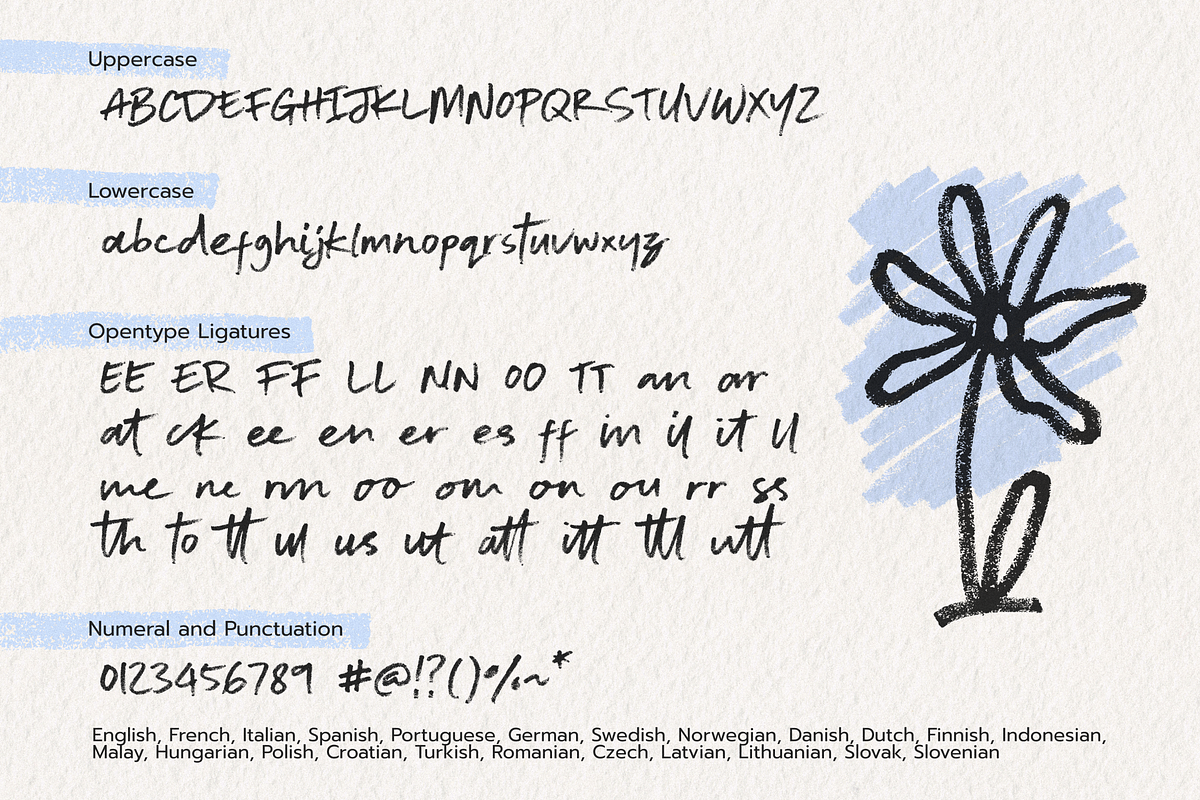 Uppercase
ABCDEFGHIJKLMNOPQRSTUVWXYZ
Lowercase
abcdefghijklmnopqrstuvwxyz
Opentype Ligatures
EE ER FF LL NN OO TT an ar
at ck ee en er es ff in il it ll
me ne nn oo om on ou rr ss
th to tt ul us ut att itt ttl utt
Numeral and Punctuation
0123456789 #@!?()%~*
English, French, Italian, Spanish, Portuguese, German, Swedish, Norwegian, Danish, Dutch, Finnish, Indonesian,
Malay, Hungarian, Polish, Croatian, Turkish, Romanian, Czech, Latvian, Lithuanian, Slovak, Slovenian